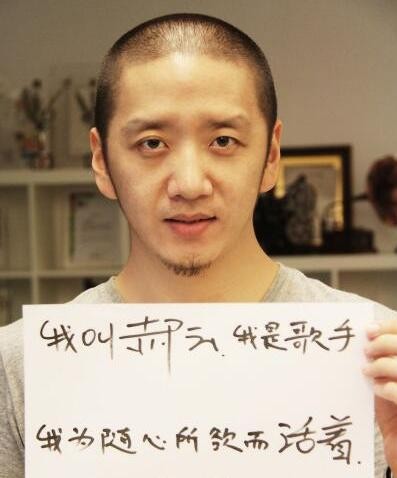 我叫郝云,我是歌手
我为随心所欲而活着.